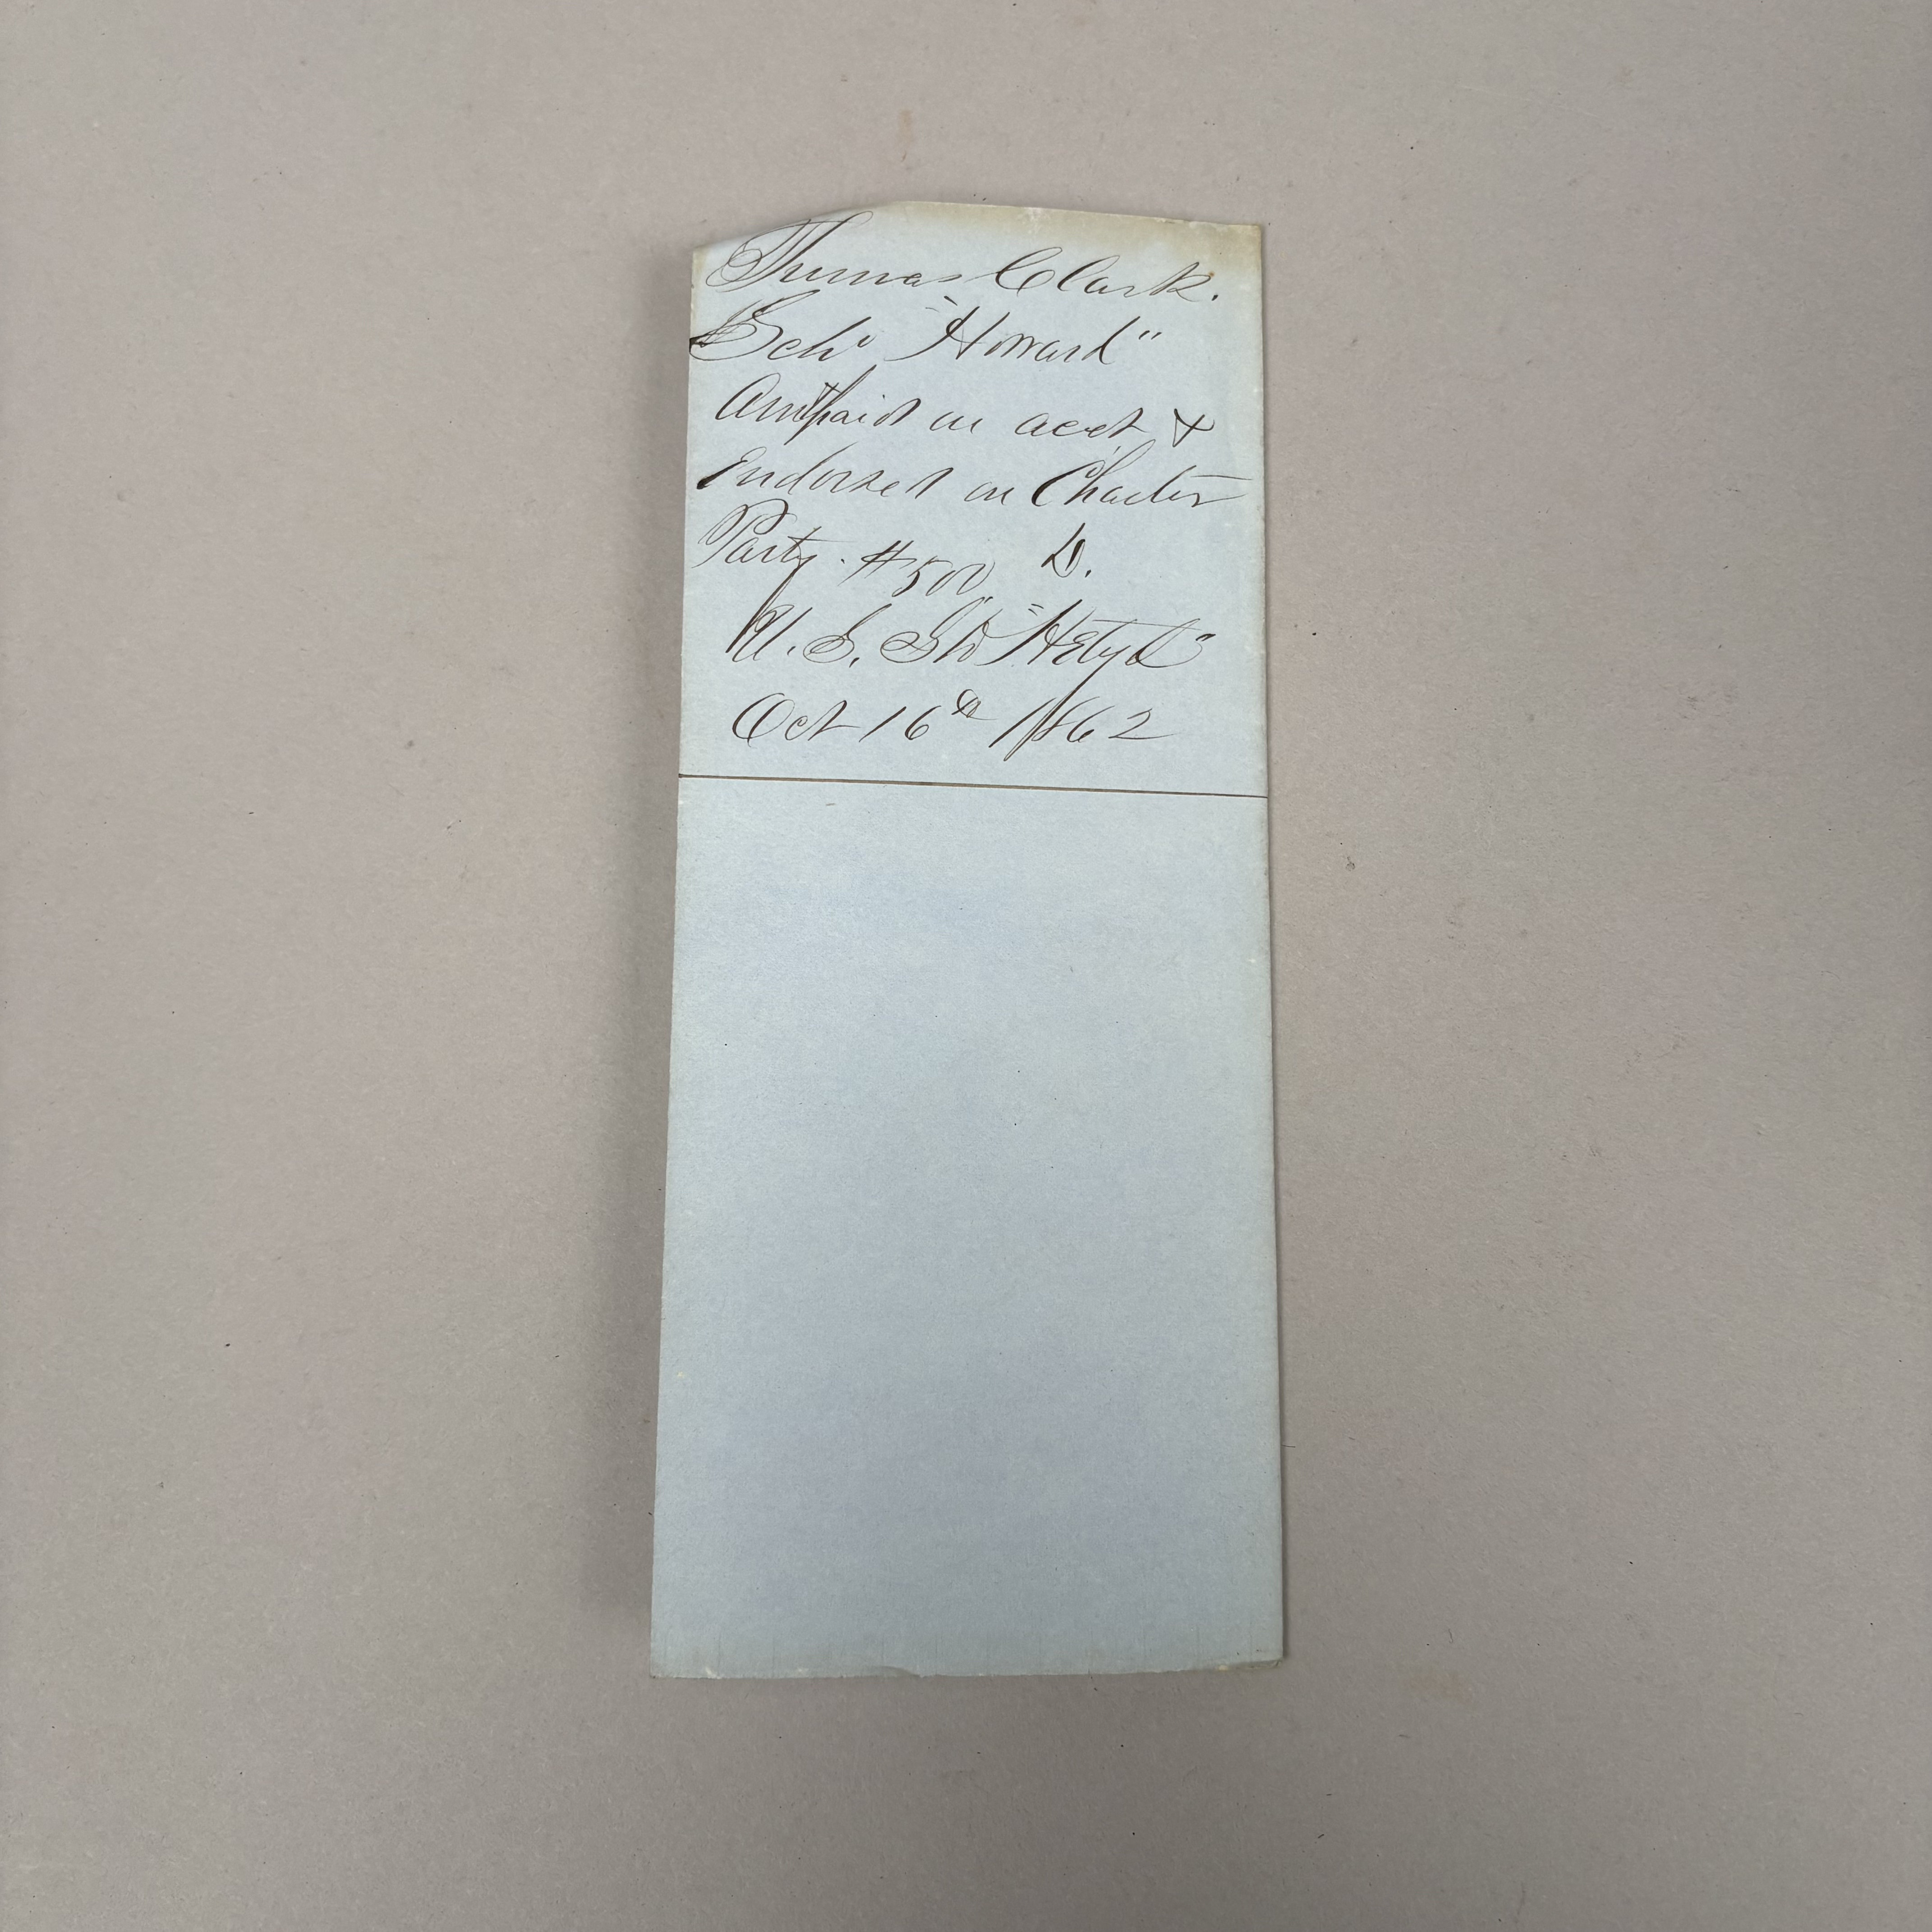 Thomas Clark.
Schr "Howard"
Amt paid on acct &
Endorsed on Charter
Party. $500, D.
U.S. Str
Oct 16th 1862